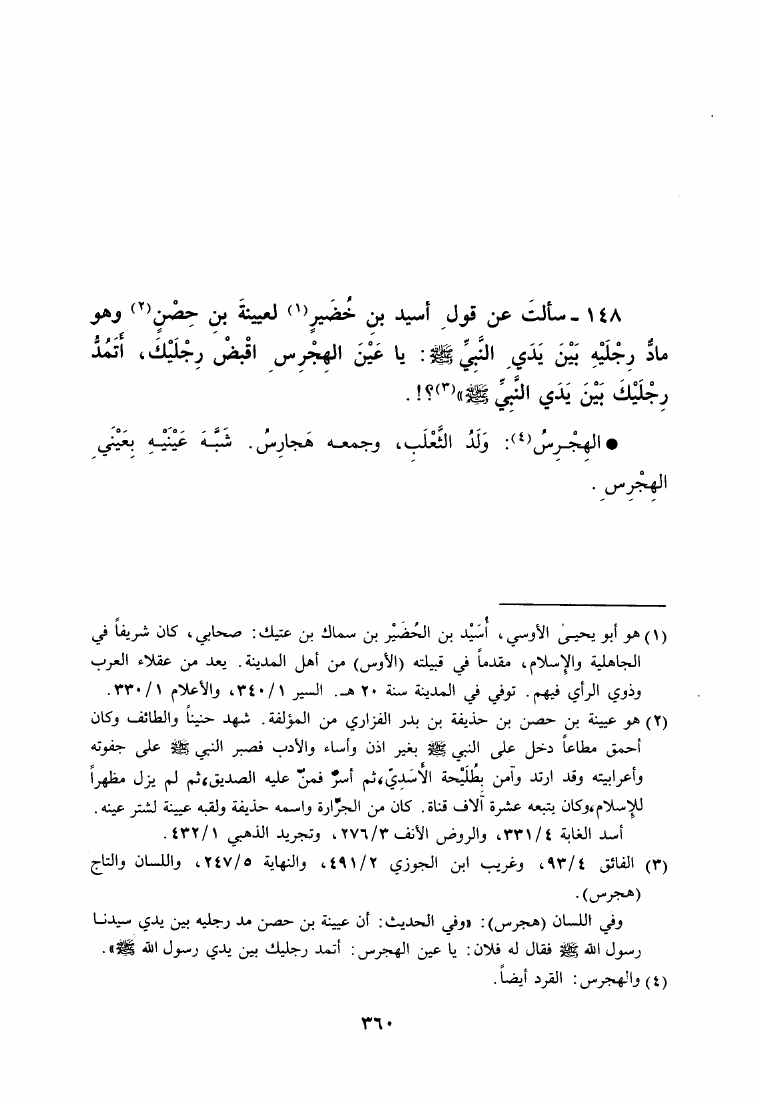 ١٤٨ - سألتَ عن قول أسيد بنِ خُضَيرٍ(١) لعيينةَ بنِ حِصْنٍ(٢) وهو
مادٌّ رِجْلَيْهِ بَيْنَ يَدَيِ النَّبِيِّ ﷺ: يا عَيْنَ الهِجْرِسِ اقْبِضْ رِجْلَيْكَ، أَتَمُدُّ
رِجْلَيْكَ بَيْنَ يَدَي النَّبِيِّ ﷺ»(٣)؟!.
● الهِجْرِسُ(٤): وَلَدُ الثَّعْلَبِ، وجمعه هَجارِسُ. شَبَّهَ عَيْنَيْهِ بِعَيْنَيِ
الهِجْرِسِ.
(١) هو أبو يحيىٰ الأوسي، أُسَيْد بن الحُضَيْر بن سماك بن عتيك: صحابي، كان شريفاً في
الجاهلية والإسلام، مقدماً في قبيلته (الأوس) من أهل المدينة. يعد من عقلاء العرب
وذوي الرأي فيهم. توفي في المدينة سنة ٢٠ هـ. السير ٣٤٠/١، والأعلام ٣٣٠/١.
(٢) هو عيينة بن حصن بن حذيفة بن بدر الفزاري من المؤلفة. شهد حنيناً والطائف وكان
أحمق مطاعاً دخل على النبي ﷺ بغير اذن وأساء والأدب فصبر النبي ﷺ على جفوته
وأعرابيته وقد ارتد وآمن بِطُلَيْحة الأَسَدِيّ،ثم أسرّ فمنّ عليه الصديق،ثم لم يزل مظهراً
للإسلام،وكان يتبعه عشرة آلاف قناة. كان من الجرّارة واسمه حذيفة ولقبه عيينة لشتر عينه.
أسد الغابة ٣٣١/٤، والروض الأنف ٢٧٦/٣، وتجريد الذهبي ٤٣٢/١.
(٣) الفائق ٩٣/٤، وغريب ابن الجوزي ٤٩١/٢، والنهاية ٢٤٧/٥، واللسان والتاج
(هجرس).
وفي اللسان (هجرس): «وفي الحديث: أن عيينة بن حصن مد رجليه بين يدي سيدنا
رسول الله ﷺ فقال له فلان: يا عين الهجرس: أتمد رجليك بين يدي رسول الله ﷺ».
(٤) والهجرس: القرد أيضاً.
٣٦٠